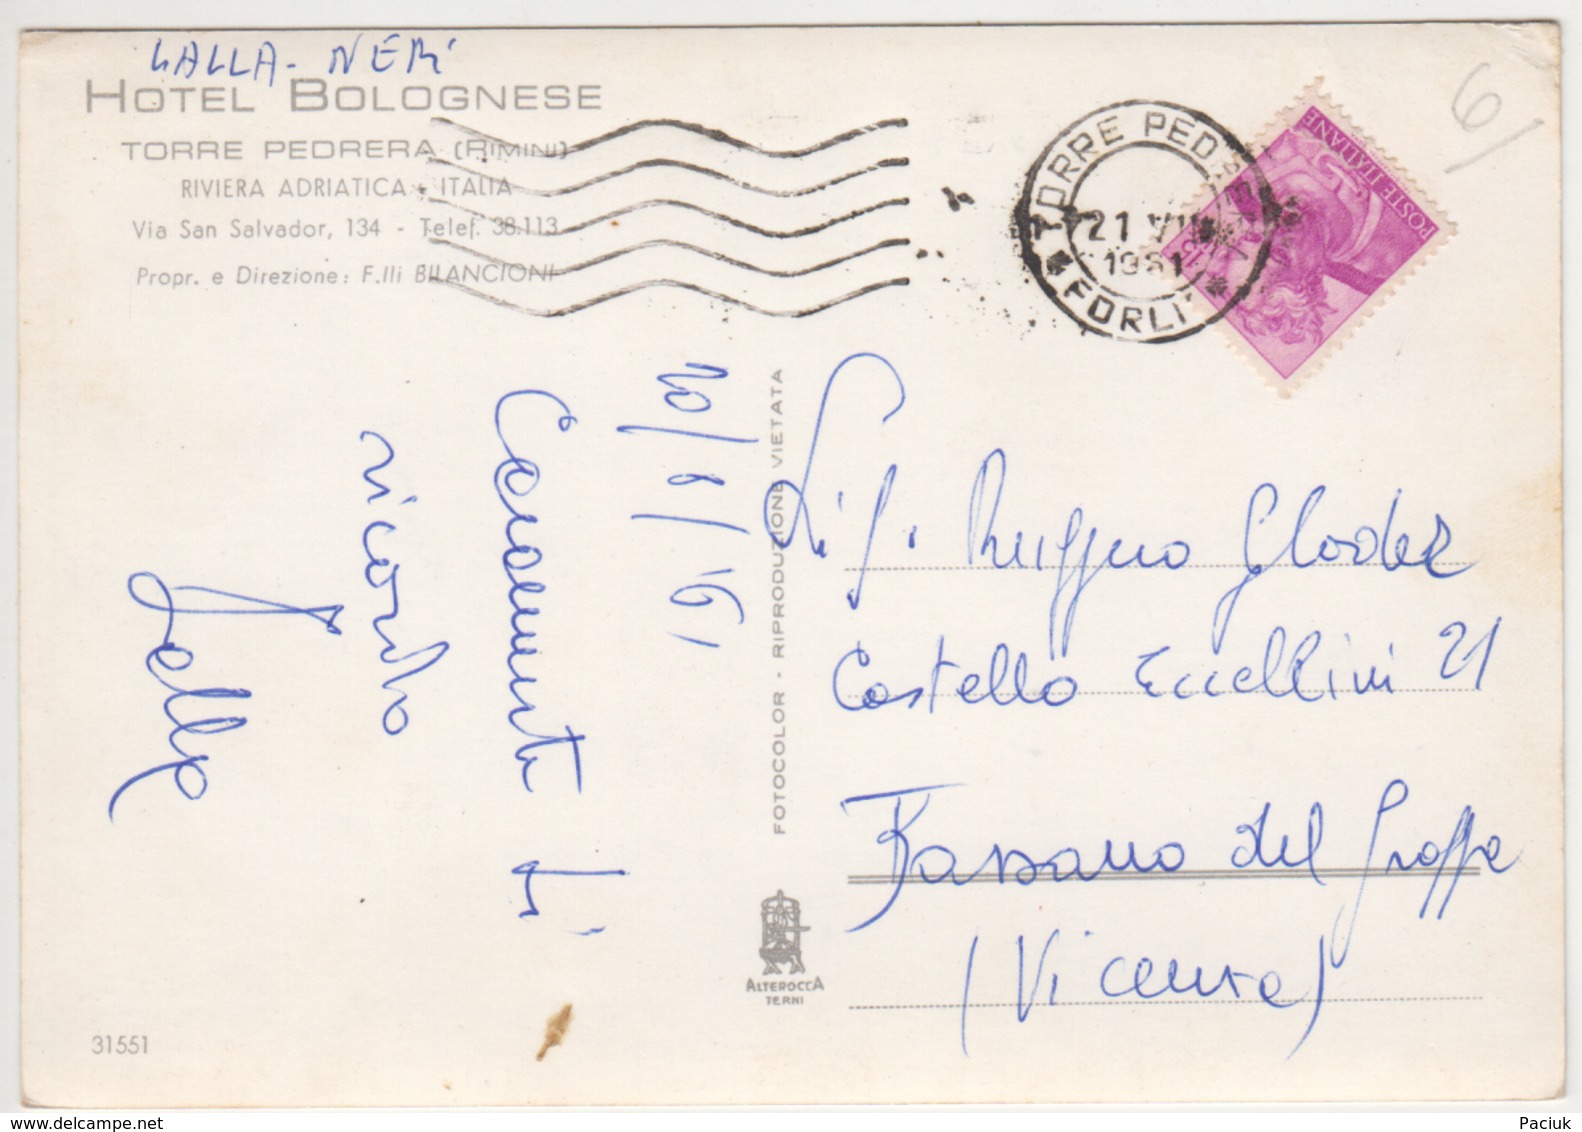 LALLA - NERI
HOTEL BOLOGNESE
TORRE PEDRERA (RIMINI)
RIVIERA ADRIATICA - ITALIA
Via San Salvador, 134 - Telef. 38.113
Propr. e Direzione: F.lli BILANCIONI
20/8/'61
Caramente ti
ricordo
Lalla
31551
FOTOCOLOR - RIPRODUZIONE VIETATA
ALTEROCCA
TERNI
TORRE PED
21 VIII
1961
FORLI
POSTE ITALIANE
6
Sig. Ruggero Gloder
Costello Eccellini 21
Bassano del Grappa
(Vicenza)
www.delcampe.net
Paciuk